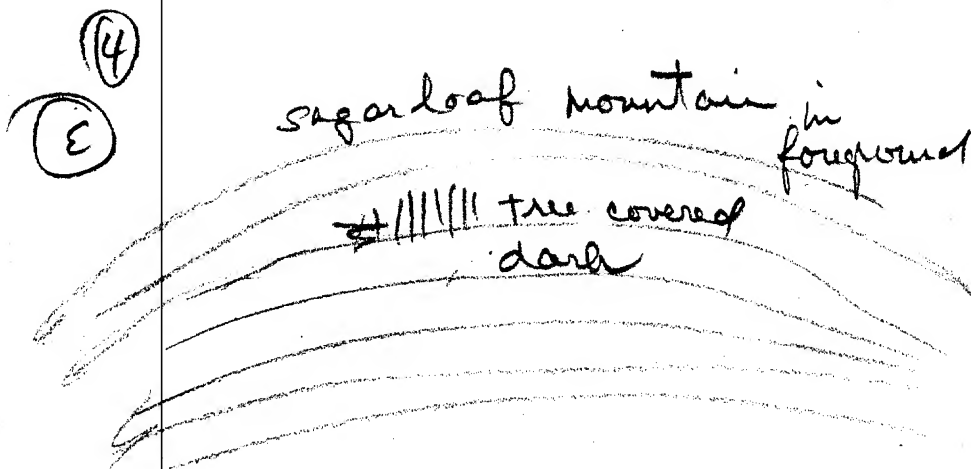 4
E
sugarloaf mountain in
foreground
tree covered
dark